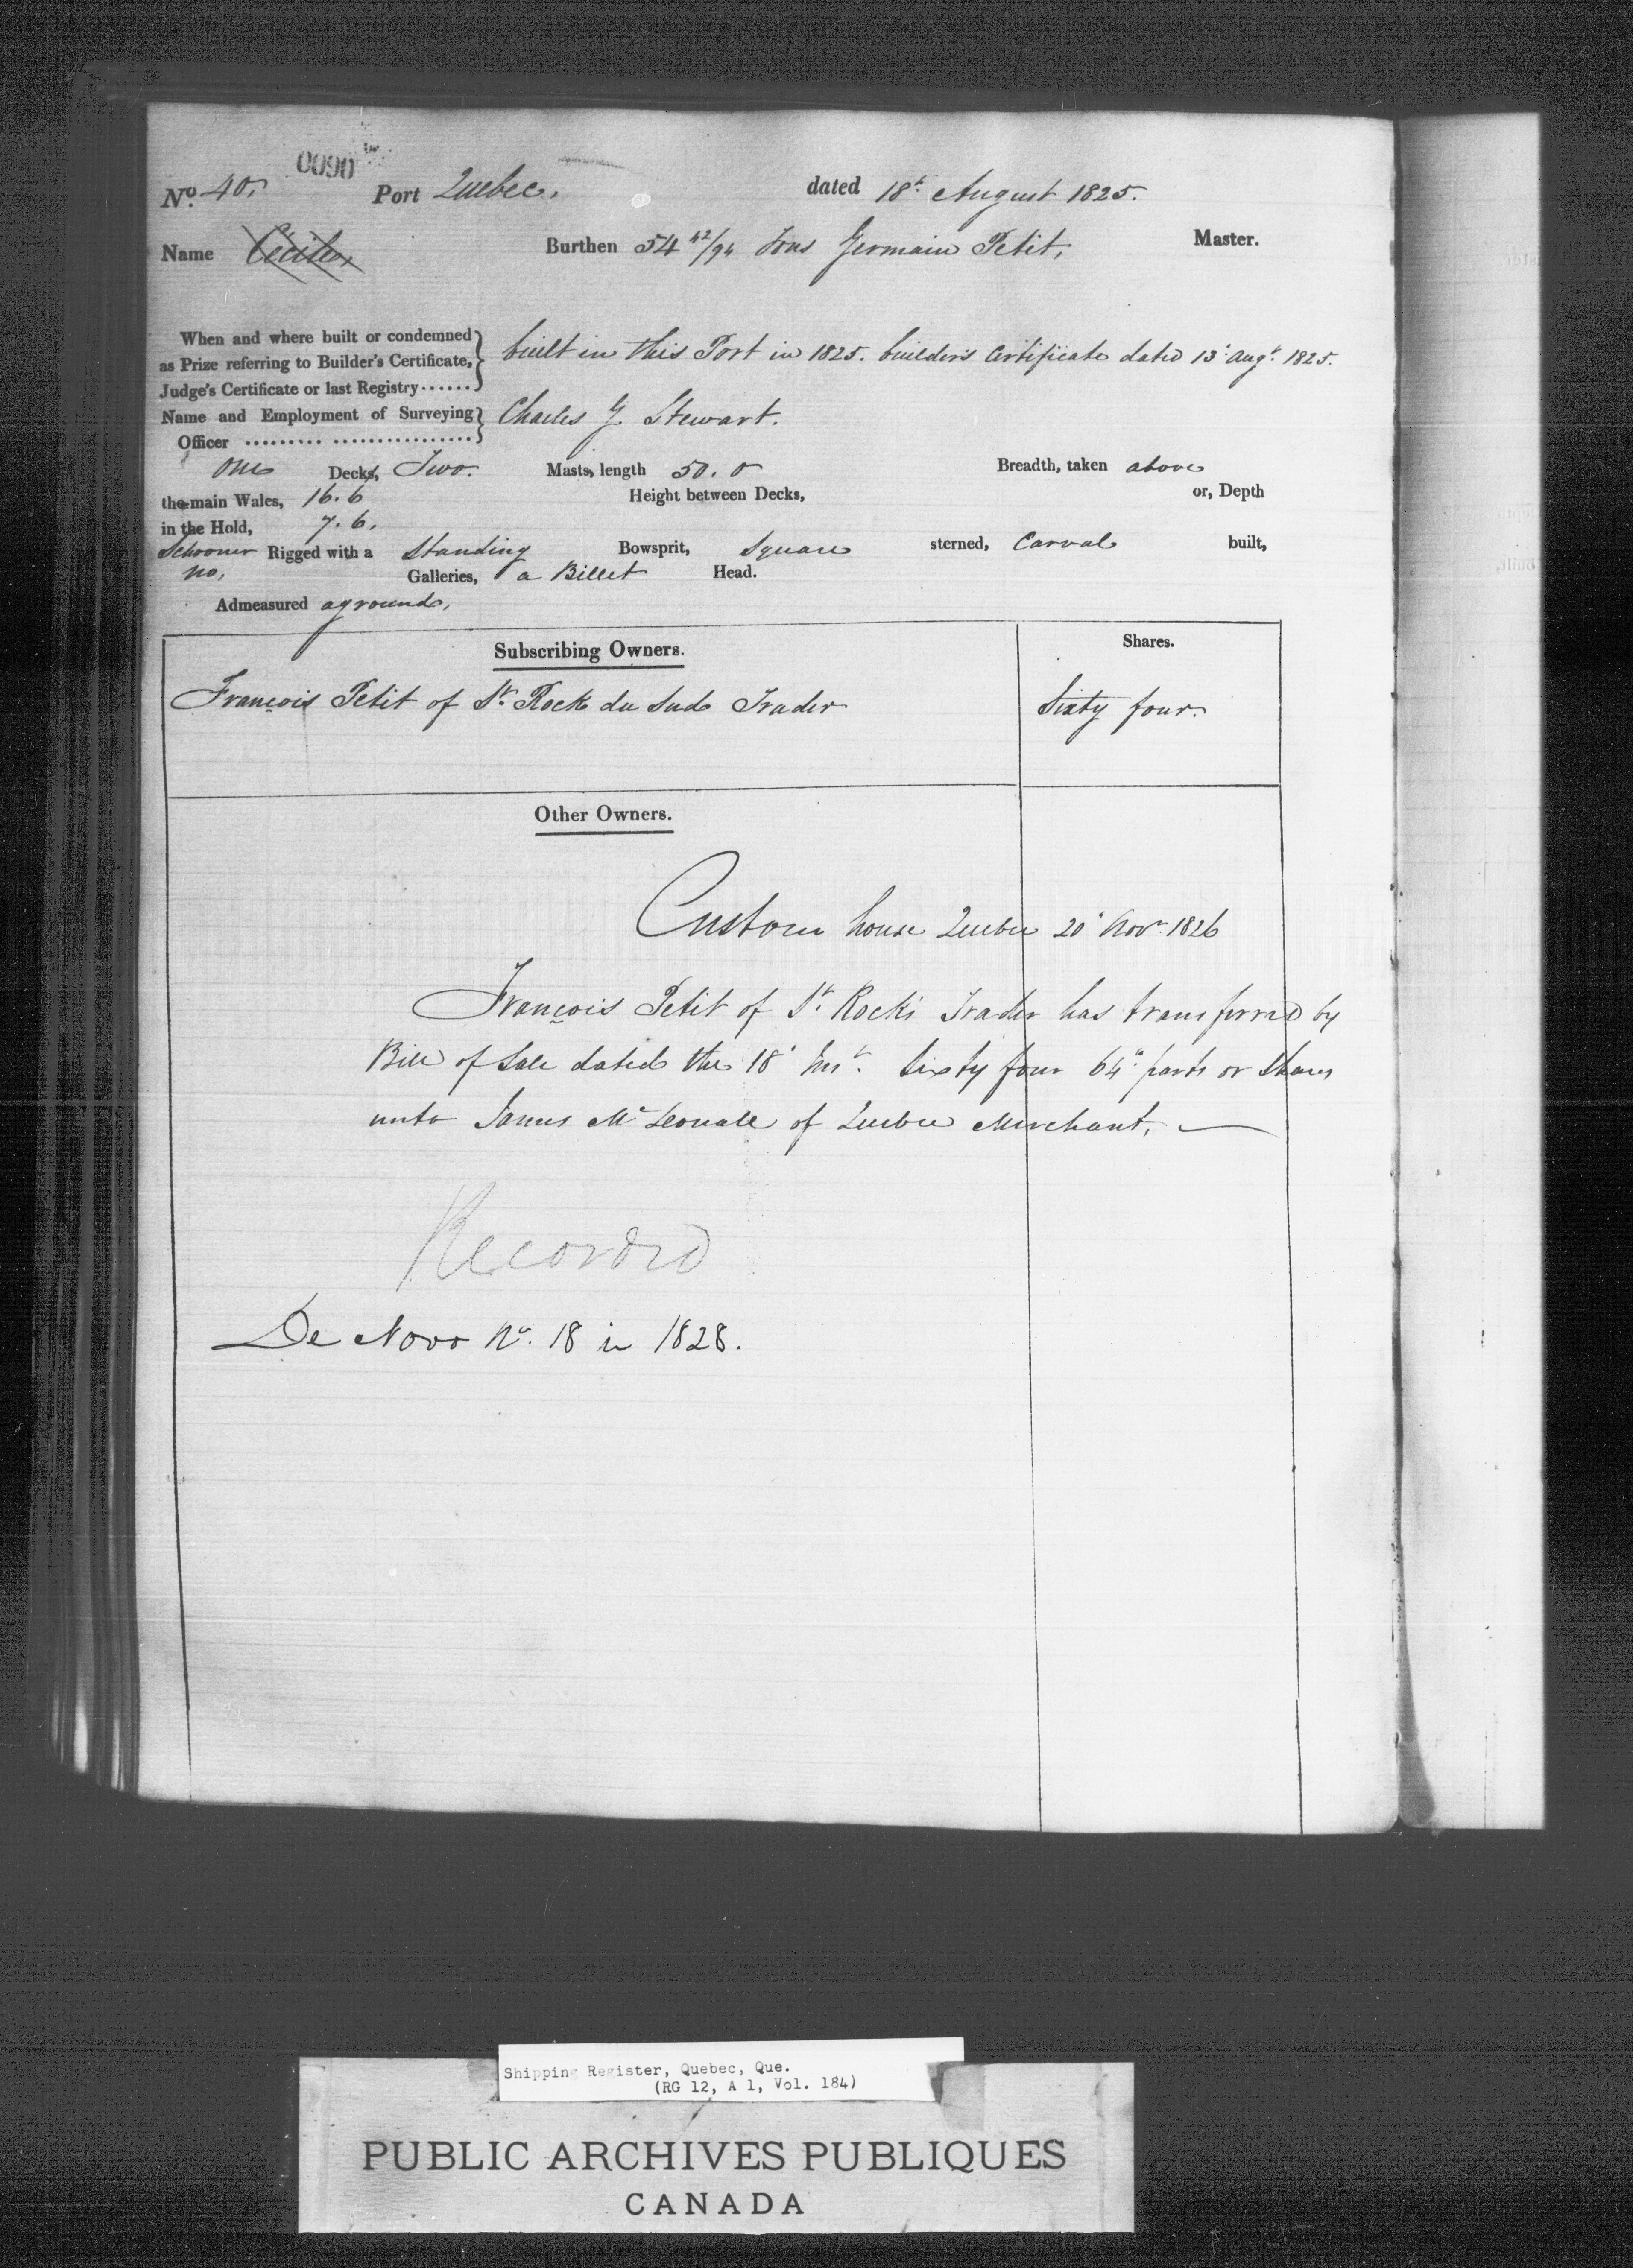 0090
No. 40. Port Quebec. dated 18th August 1825.
Name Cecile, Burthen 54 42/94 Tons Germain Petit, Master.
When and where built or condemned
as Prize referring to Builder's Certificate,
Judge's Certificate or last Registry......
built in this Port in 1825. builders Certificate dated 13th Augt. 1825.
Name and Employment of Surveying
Officer ......... ................
Charles G Stewart.
one Decks, Two. Masts, length 50.0 Breadth, taken above
the main Wales, 16.6 Height between Decks, or, Depth
in the Hold, 7.6.
Schooner Rigged with a Standing Bowsprit, Square sterned, Carval built,
no, Galleries, a Billet Head.
Admeasured aground,
Subscribing Owners. Shares.
François Petit of St. Rock du Sud Trader Sixty four.
Other Owners.
Custom house Quebec 20th Novr. 1826
François Petit of St. Rocks Trader has transferred by
Bill of Sale dated the 18th Inst. Sixty four 64th parts or Shares
unto James Mc of Quebec Merchant.
Recorded
De Novo No. 18 in 1828.
Shipping Register, Quebec, Que.
(RG 12, A 1, Vol. 184)
PUBLIC ARCHIVES PUBLIQUES
CANADA